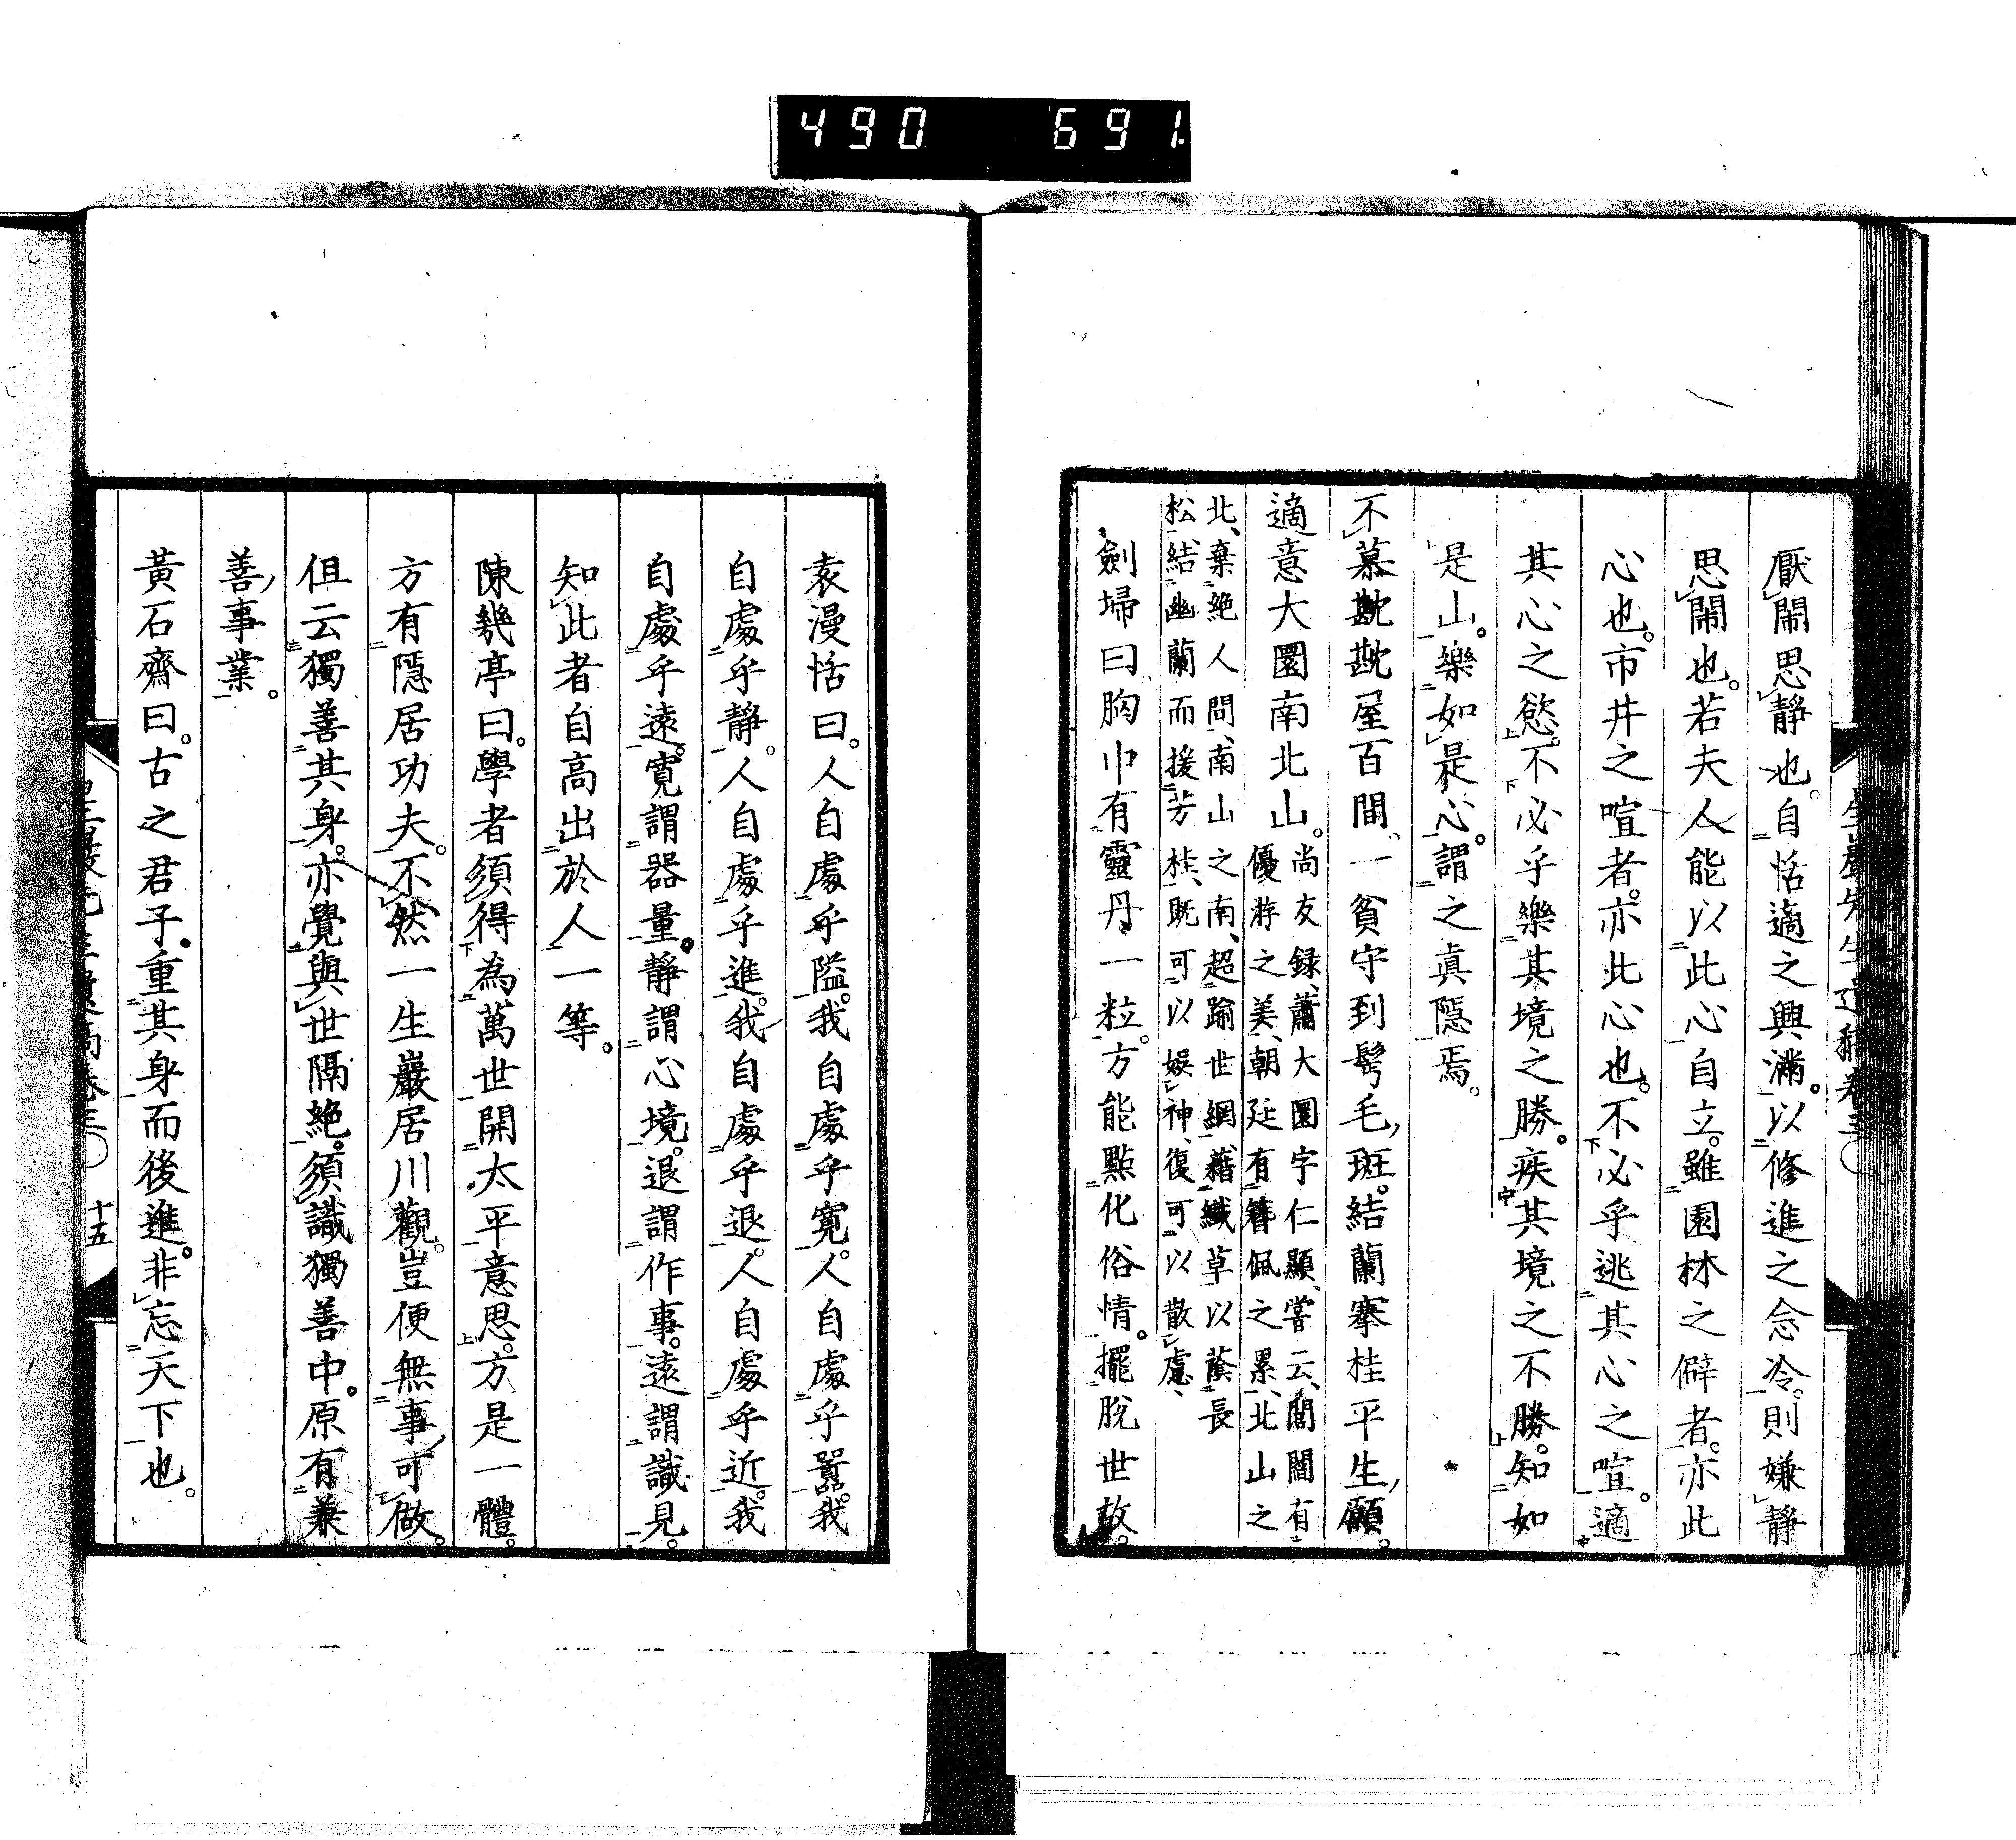 490 691.
厭鬧思靜也。自恬適之興滿。以修進之念冷。則嫌靜
思鬧也。若夫人能以此心自立。雖園林之僻者。亦此
心也。市井之喧者。亦此心也。不必乎逃其心之喧。適
其心之慾。不必乎樂其境之勝。疾其境之不勝。知如
是山。樂如是心。謂之真隱焉。
不慕戡戡屋百間、一貧守到髩毛斑。結蘭搴桂平生願。
適意大圜南北山。尚友録、蕭大圜字仁顯、嘗云、閭閻有
優游之美、朝廷有簪佩之累、北山之
北、棄絶人間、南山之南、超踰世網、藉纖草以蔭長
松、結幽蘭而援芳桂、既可以娯神、復可以散慮、
劍埽曰胸巾有靈丹一粒。方能點化俗情。擺脫世故。
袁漫恬曰。人自處乎隘。我自處乎寛。人自處乎囂。我
自處乎靜。人自處乎進。我自處乎退。人自處乎近。我
自處乎遠。寛謂器量。靜謂心境。退謂作事。遠謂識見。
知此者自高出於人一等。
陳幾亭曰。學者須得為萬世開太平意思。方是一體。
方有隱居功夫。不然一生巖居川觀。豈便無事可做。
但云獨善其身。亦覺與世隔絶。須識獨善中。原有兼
善事業。
黃石齋曰。古之君子。重其身而後進。非忘天下也。
十五